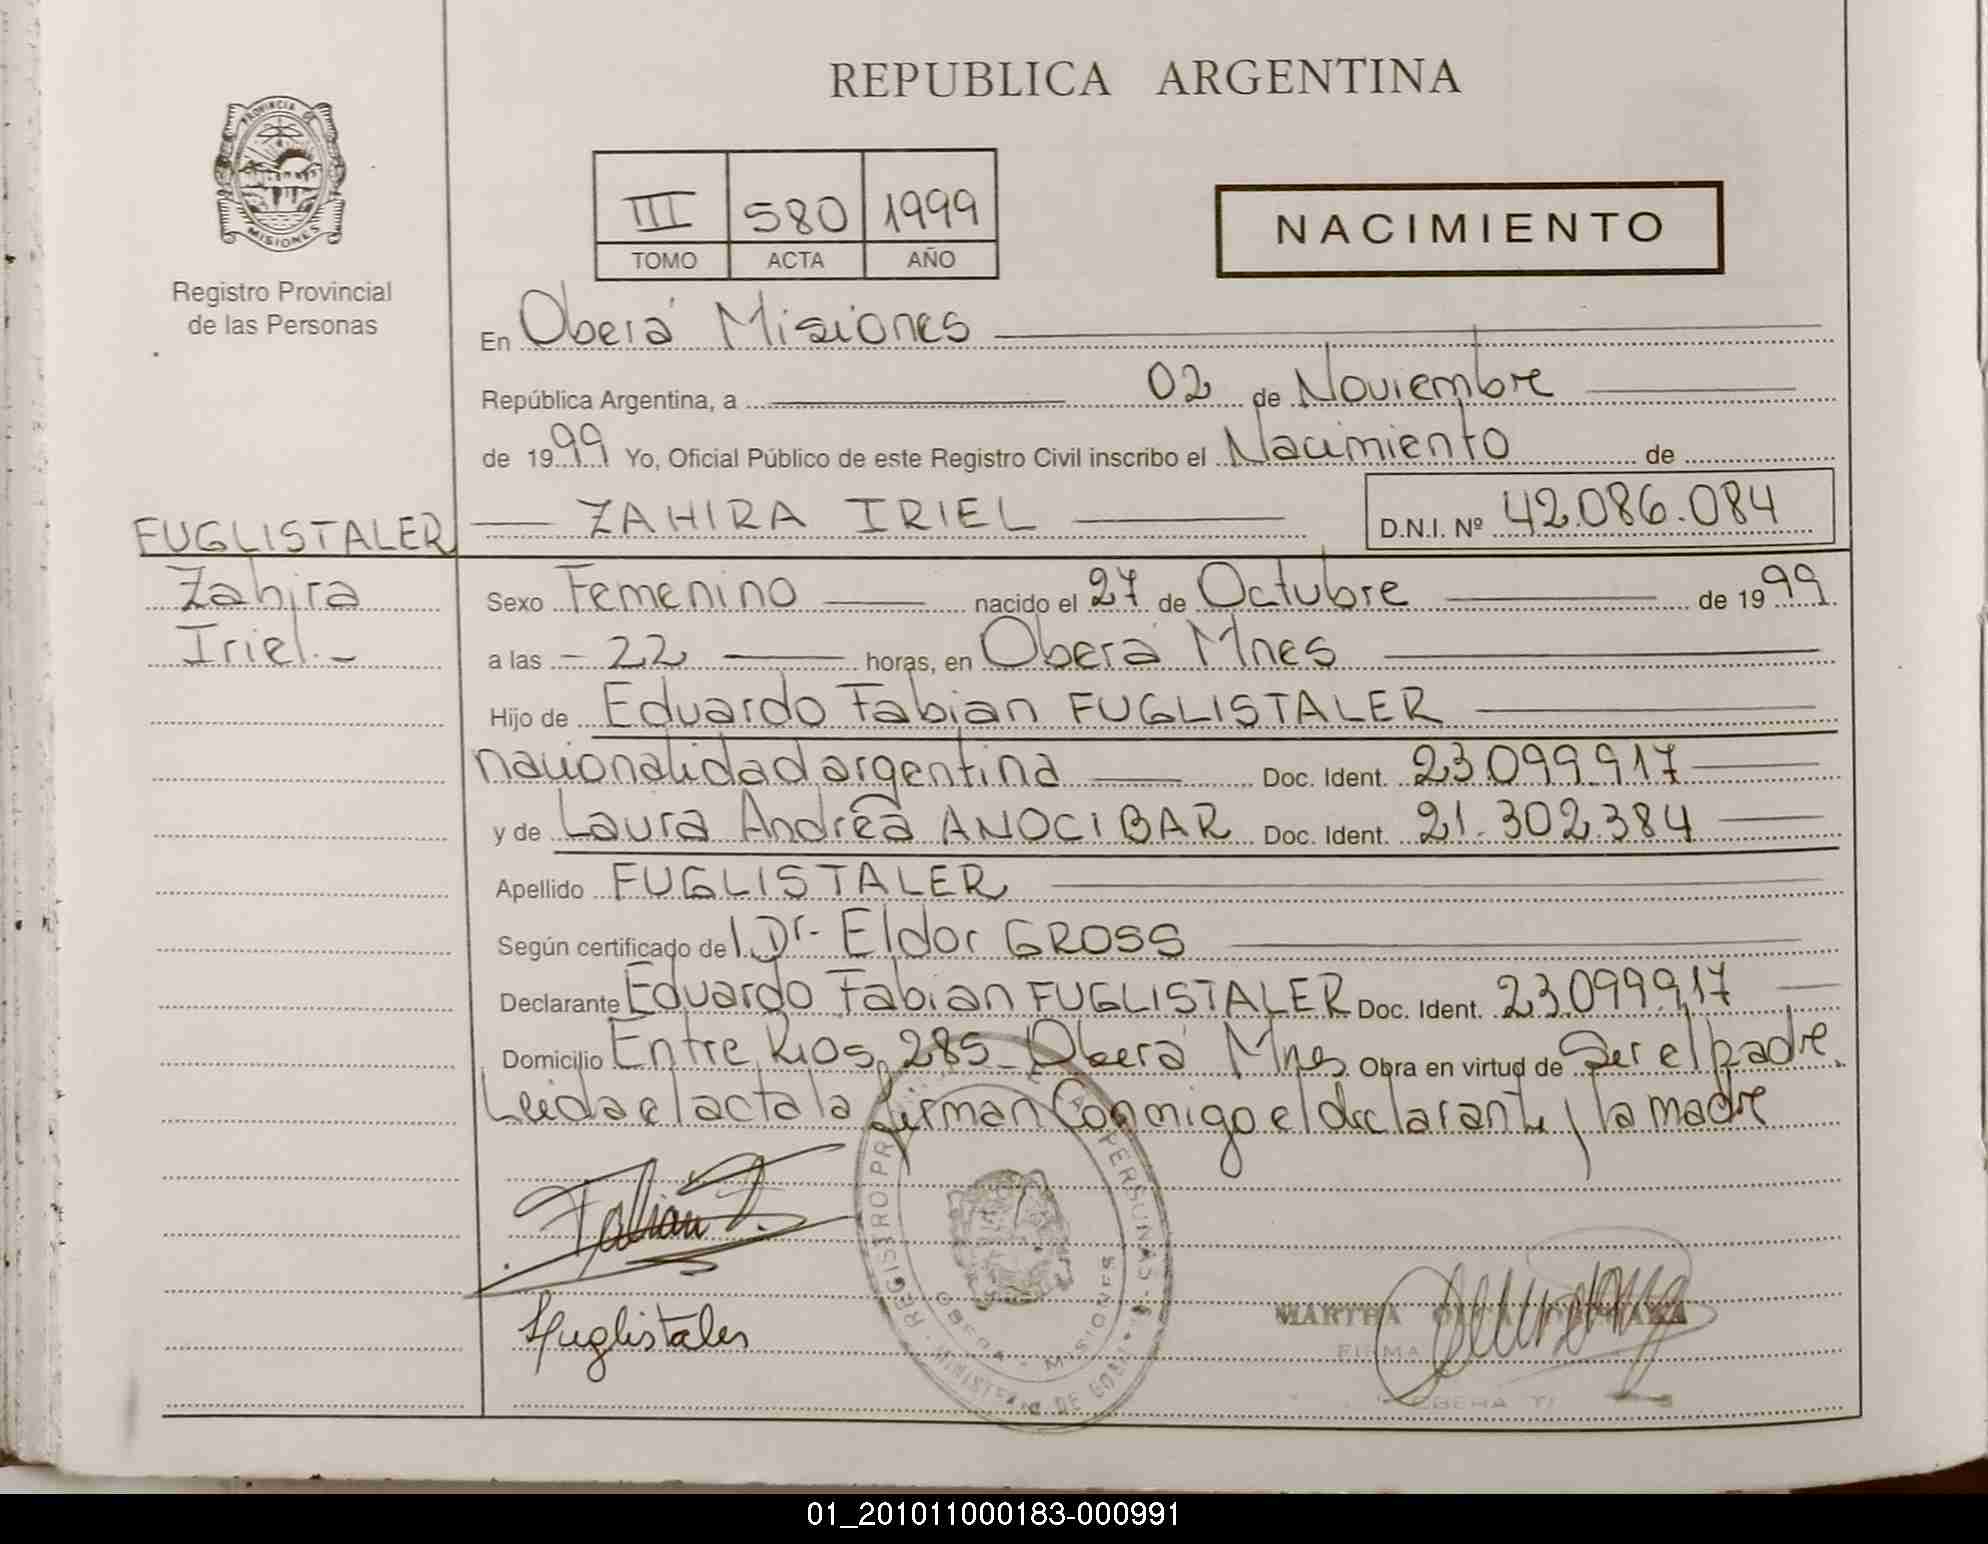 REPUBLICA ARGENTINA
PROVINCIA DE
MISIONES
Registro Provincial
de las Personas
III 580 1999
TOMO ACTA AÑO
NACIMIENTO
En Oberá Misiones
República Argentina, a 02 de Noviembre
de 1999 Yo, Oficial Público de este Registro Civil inscribo el Nacimiento de
FUGLISTALER ZAHIRA IRIEL D.N.I. Nº 42.086.084
Zahira
Iriel.-
Sexo Femenino nacido el 27 de Octubre de 1999
a las - 22 horas, en Oberá Mnes
Hijo de Eduardo Fabian FUGLISTALER
nacionalidad argentina Doc. Ident. 23.099.917
y de Laura Andrea ANOCIBAR Doc. Ident. 21.302.384
Apellido FUGLISTALER
Según certificado del Dr. Eldor GROSS
Declarante Eduardo Fabian FUGLISTALER Doc. Ident. 23.099.917
Domicilio Entre Rios 285 - Oberá Mnes Obra en virtud de Ser el padre.
Leida el acta la firman Conmigo el declarante y la madre
Fabian F.
Fuglistaler
REGISTRO PERSONAS
OBERA - MISIONES
MINISTERIO DE
MARTHA
FIRMA
01_201011000183-000991